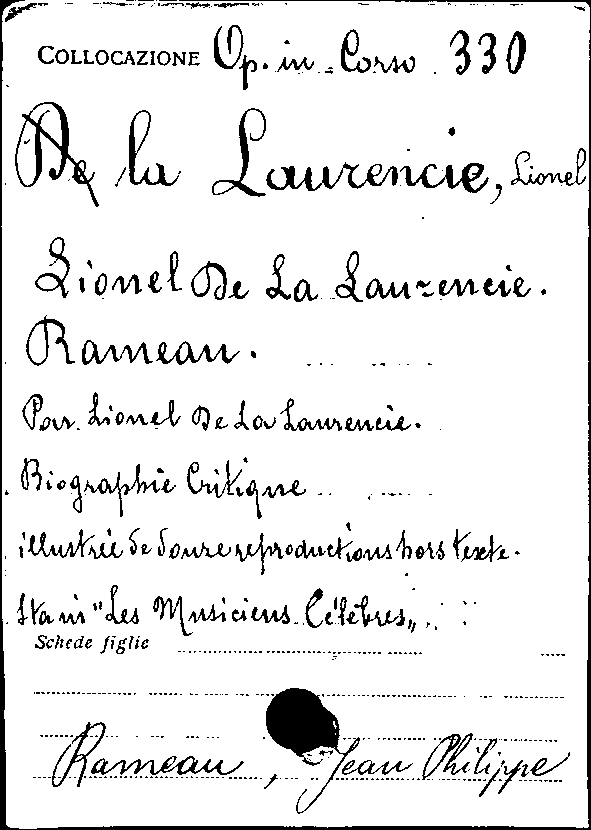 COLLOCAZIONE Op. in Corso 330
De la Laurencie, Lionel
Lionel De La Laurencie.
Rameau.
Par Lionel De La Laurencie.
Biographie Critique
illustrée de douze reproductions hors texte.
Sta in "Les Musiciens Célèbres„
Schede figlie
Rameau, Jean Philippe